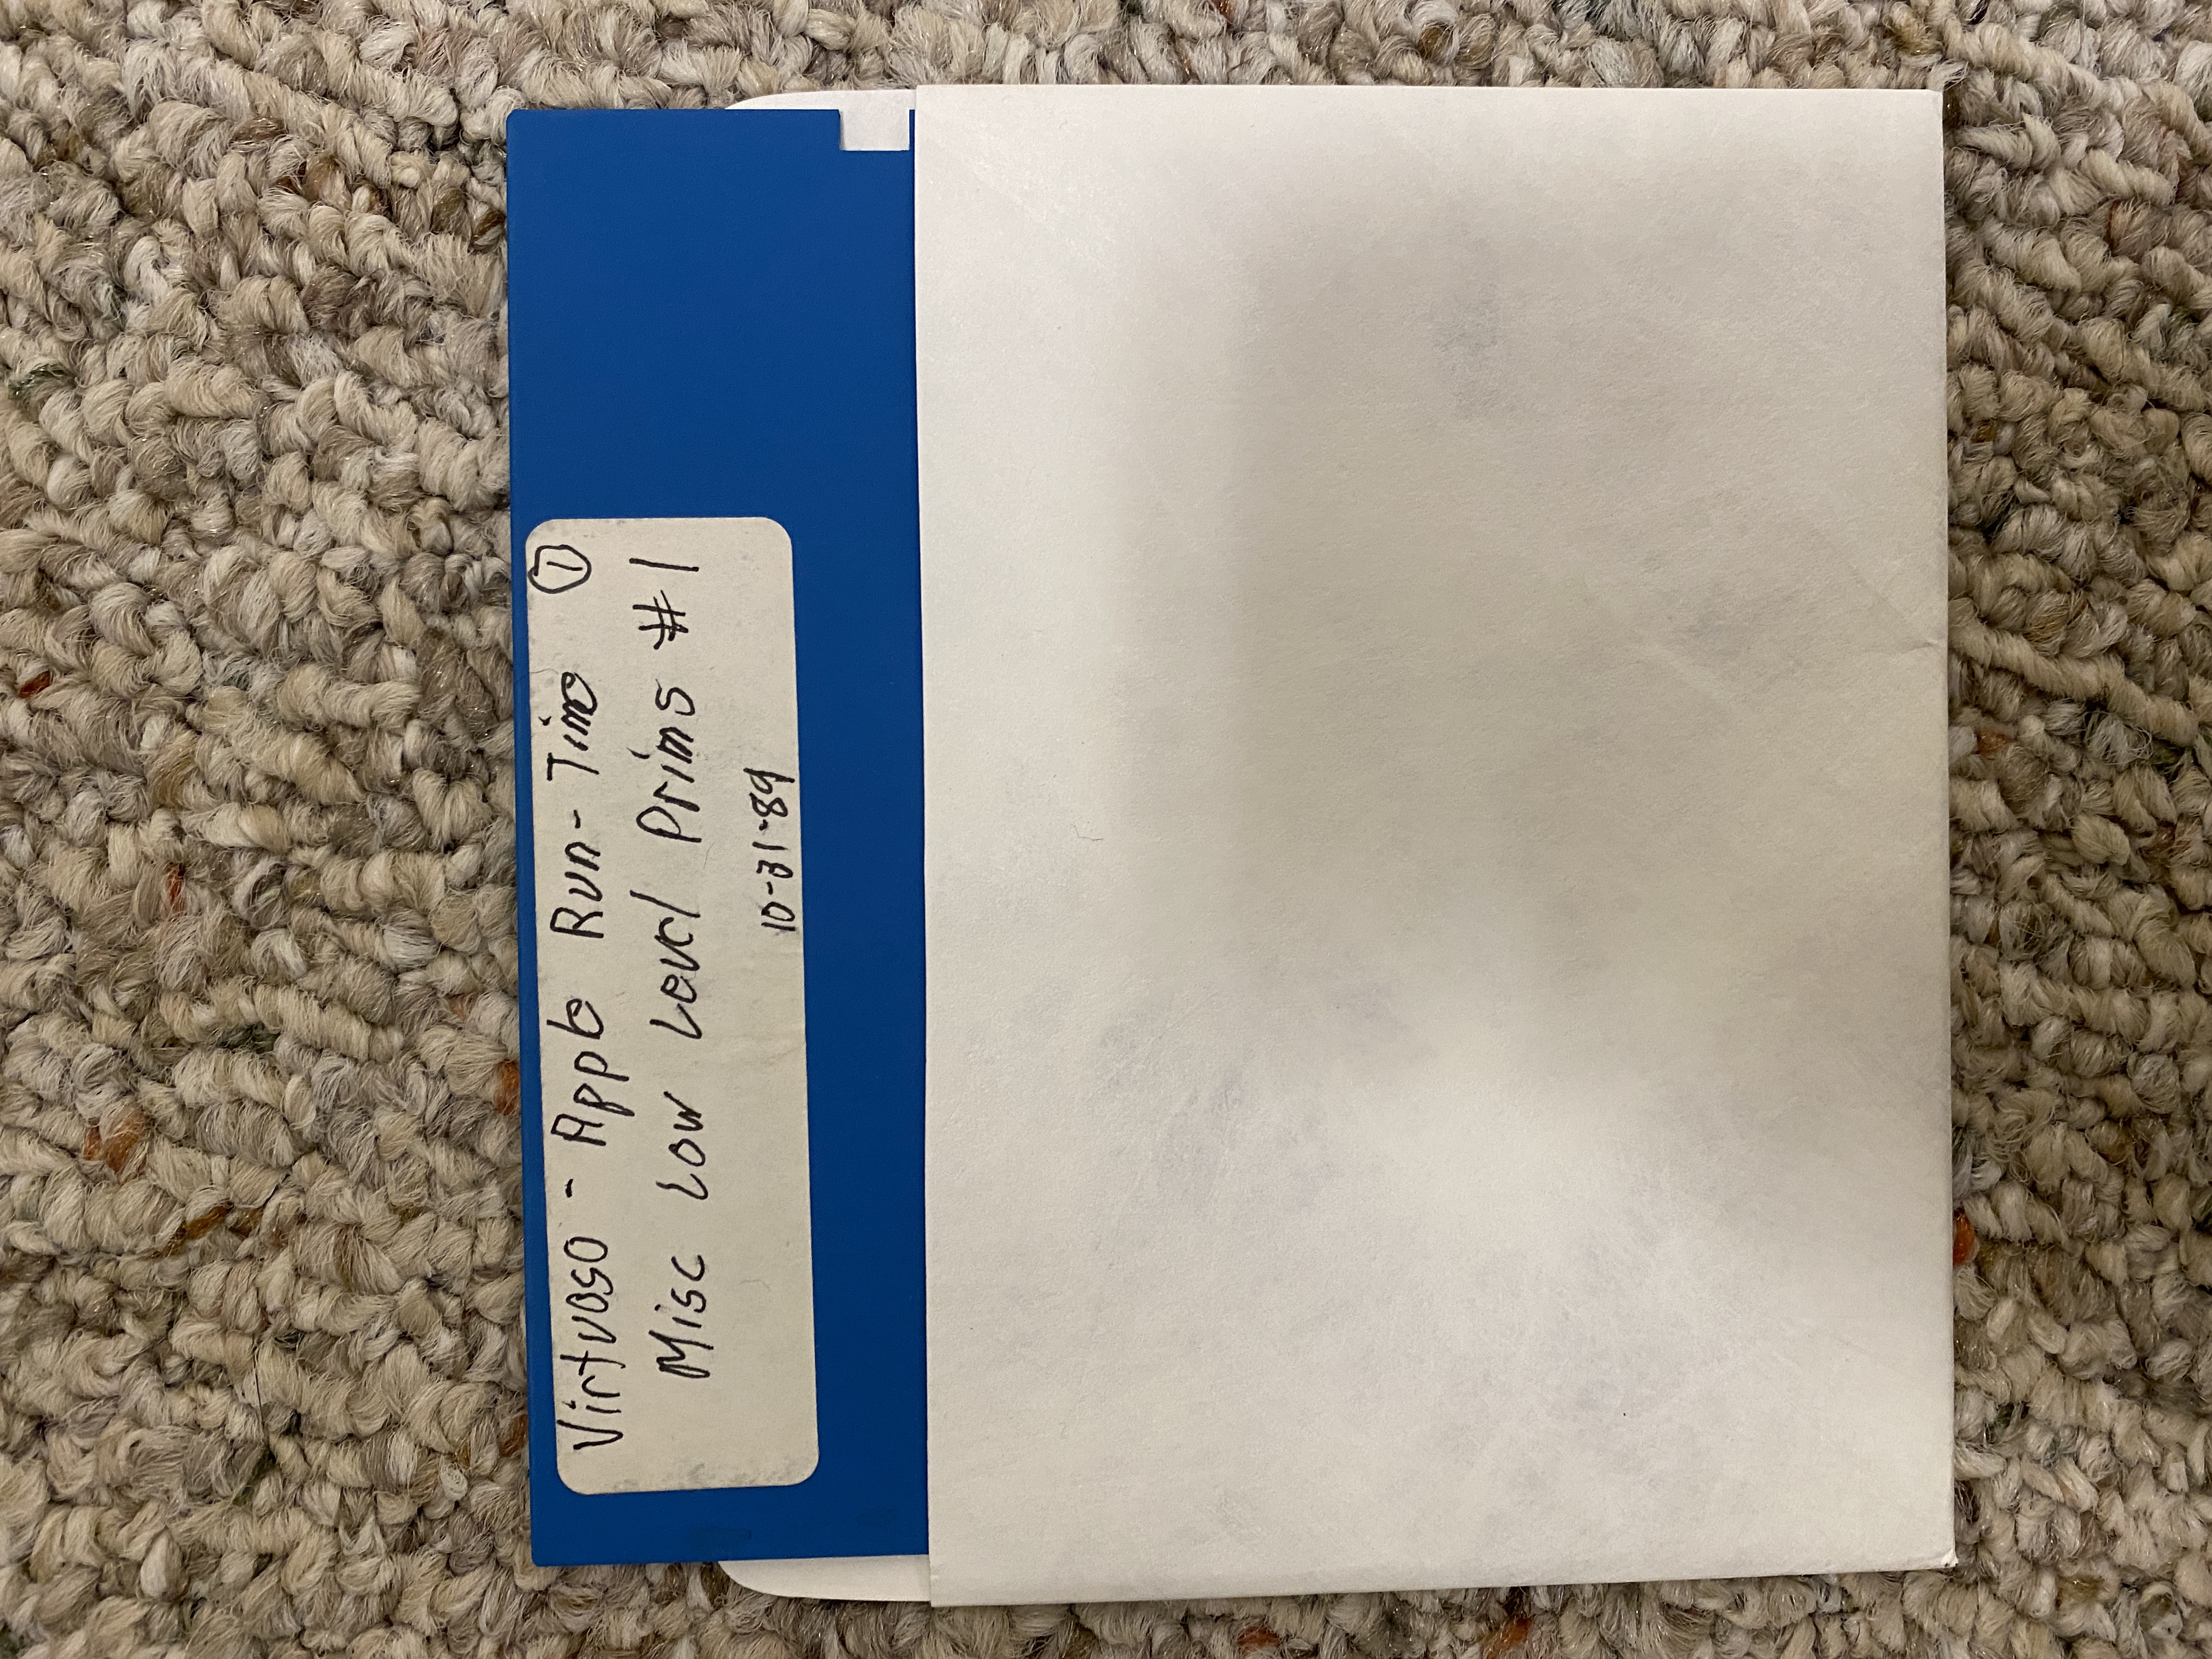 Virtuoso - Apple Run-Time ①
Misc Low Level Prims #1
10-31-89